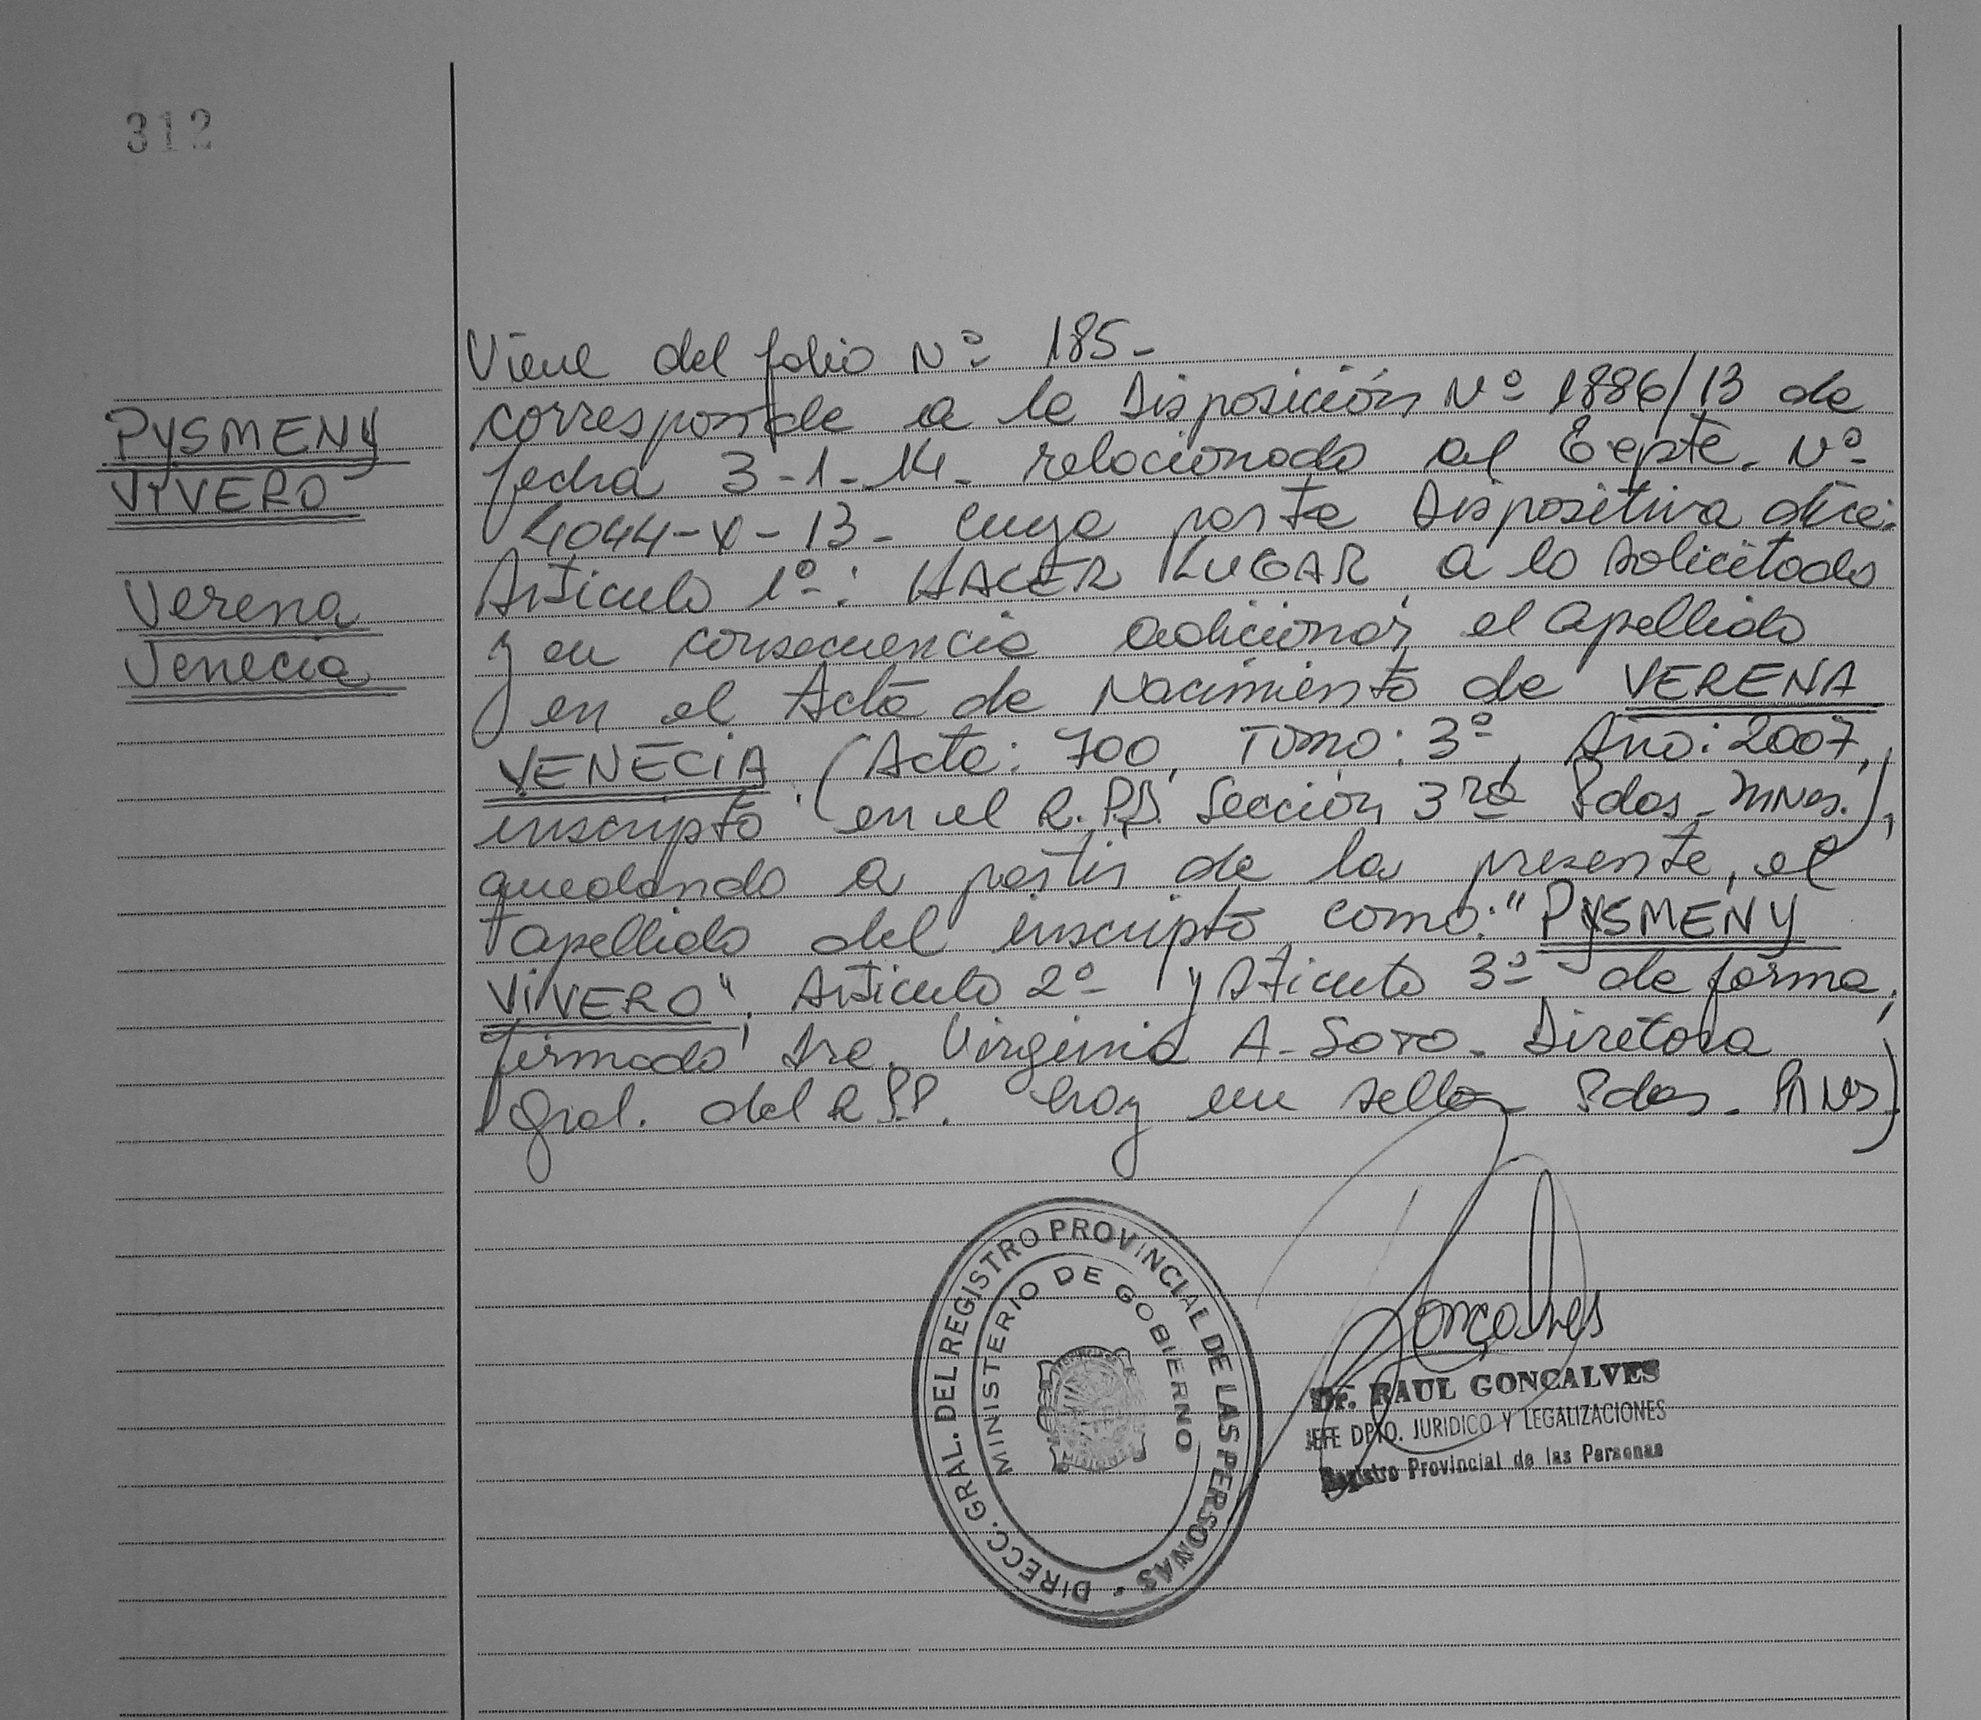 312
PYSMENY
VIVERO
Verena
Venecia
Viene del folio Nº 185-
corresponde a la Disposición Nº 1886/13 de
fecha 3-1-14- relacionado al Expte. Nº
4044-V-13- cuya parte Dispositiva dice:
Articulo 1º: HACER LUGAR a lo solicitado
y en consecuencia adicionar, el apellido
en el Acta de Nacimiento de VERENA
VENECIA (Acta: 700, Tomo: 3º, Año: 2007,
inscripto en el R.P.P. Sección 3ra Pdas. Mnes.),
quedando a partir de la presente, el
apellido del inscripto como: "PYSMENY
VIVERO", Articulo 2º y Articulo 3º de forma,
firmado, Dra. Virginia A. Soto. Diretora
Gral. del R.P.P. hay un sello- Pdas. Mnes)
DIRECC. GRAL. DEL REGISTRO PROVINCIAL DE LAS PERSONAS
MINISTERIO DE GOBIERNO
Goncalves
Dr. RAUL GONCALVES
JEFE DPTO. JURIDICO Y LEGALIZACIONES
Registro Provincial de las Personas